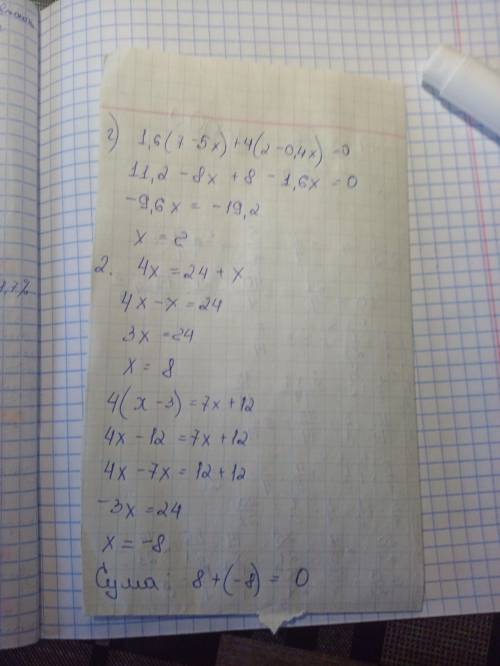 г) 1,6(7-5x)+4(2-0,4x)=0
11,2-8x+8-1,6x=0
-9,6x=-19,2
x=2
2. 4x=24+x
4x-x=24
3x=24
x=8
4(x-3)=7x+12
4x-12=7x+12
4x-7x=12+12
-3x=24
x=-8
Сума: 8+(-8)=0